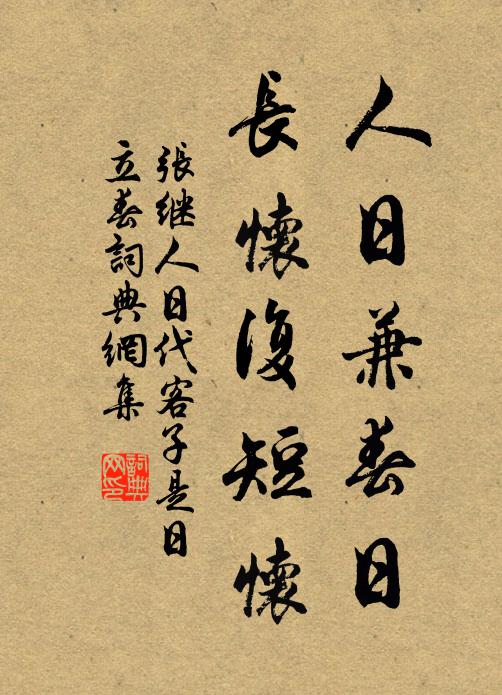 人日兼春日
長懷復短懷
張继人日代客子是日
立春詞典網集
詞典
网印